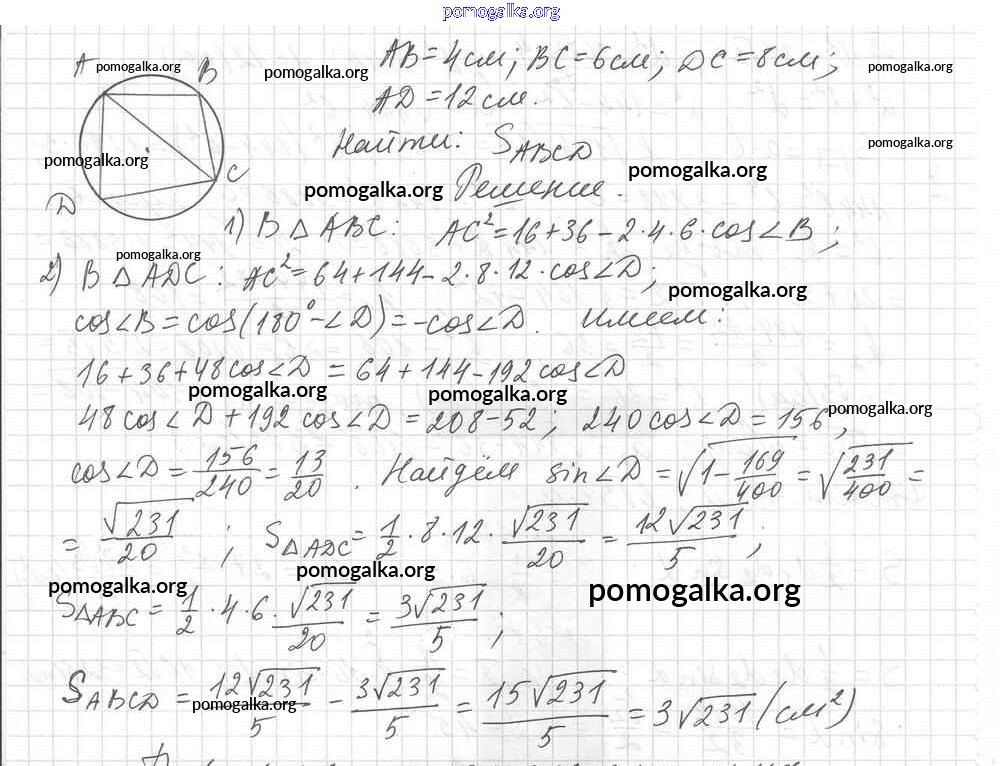 pomogalka.org
A pomogalka.org B pomogalka.org AB = 4 см; BC = 6 см; DC = 8 см; pomogalka.org
AD = 12 см.
pomogalka.org Найти: S_ABCD pomogalka.org
D C pomogalka.org Решение. pomogalka.org
1) В △ABC: AC² = 16 + 36 − 2·4·6·cos∠B;
pomogalka.org
2) В △ADC: AC² = 64 + 144 − 2·8·12·cos∠D;
pomogalka.org
cos∠B = cos(180° − ∠D) = −cos∠D. Имеем:
16 + 36 + 48cos∠D = 64 + 144 − 192cos∠D
pomogalka.org pomogalka.org
48cos∠D + 192cos∠D = 208 − 52; 240cos∠D = 156, pomogalka.org
cos∠D = 156/240 = 13/20. Найдём sin∠D = √(1 − 169/400) = √(231/400) =
= √231/20; S△ADC = 1/2·8·12·√231/20 = 12√231/5;
pomogalka.org pomogalka.org pomogalka.org
S△ABC = 1/2·4·6·√231/20 = 3√231/5;
S_ABCD = 12√231/5 − 3√231/5 = 15√231/5 = 3√231 (см²)
pomogalka.org